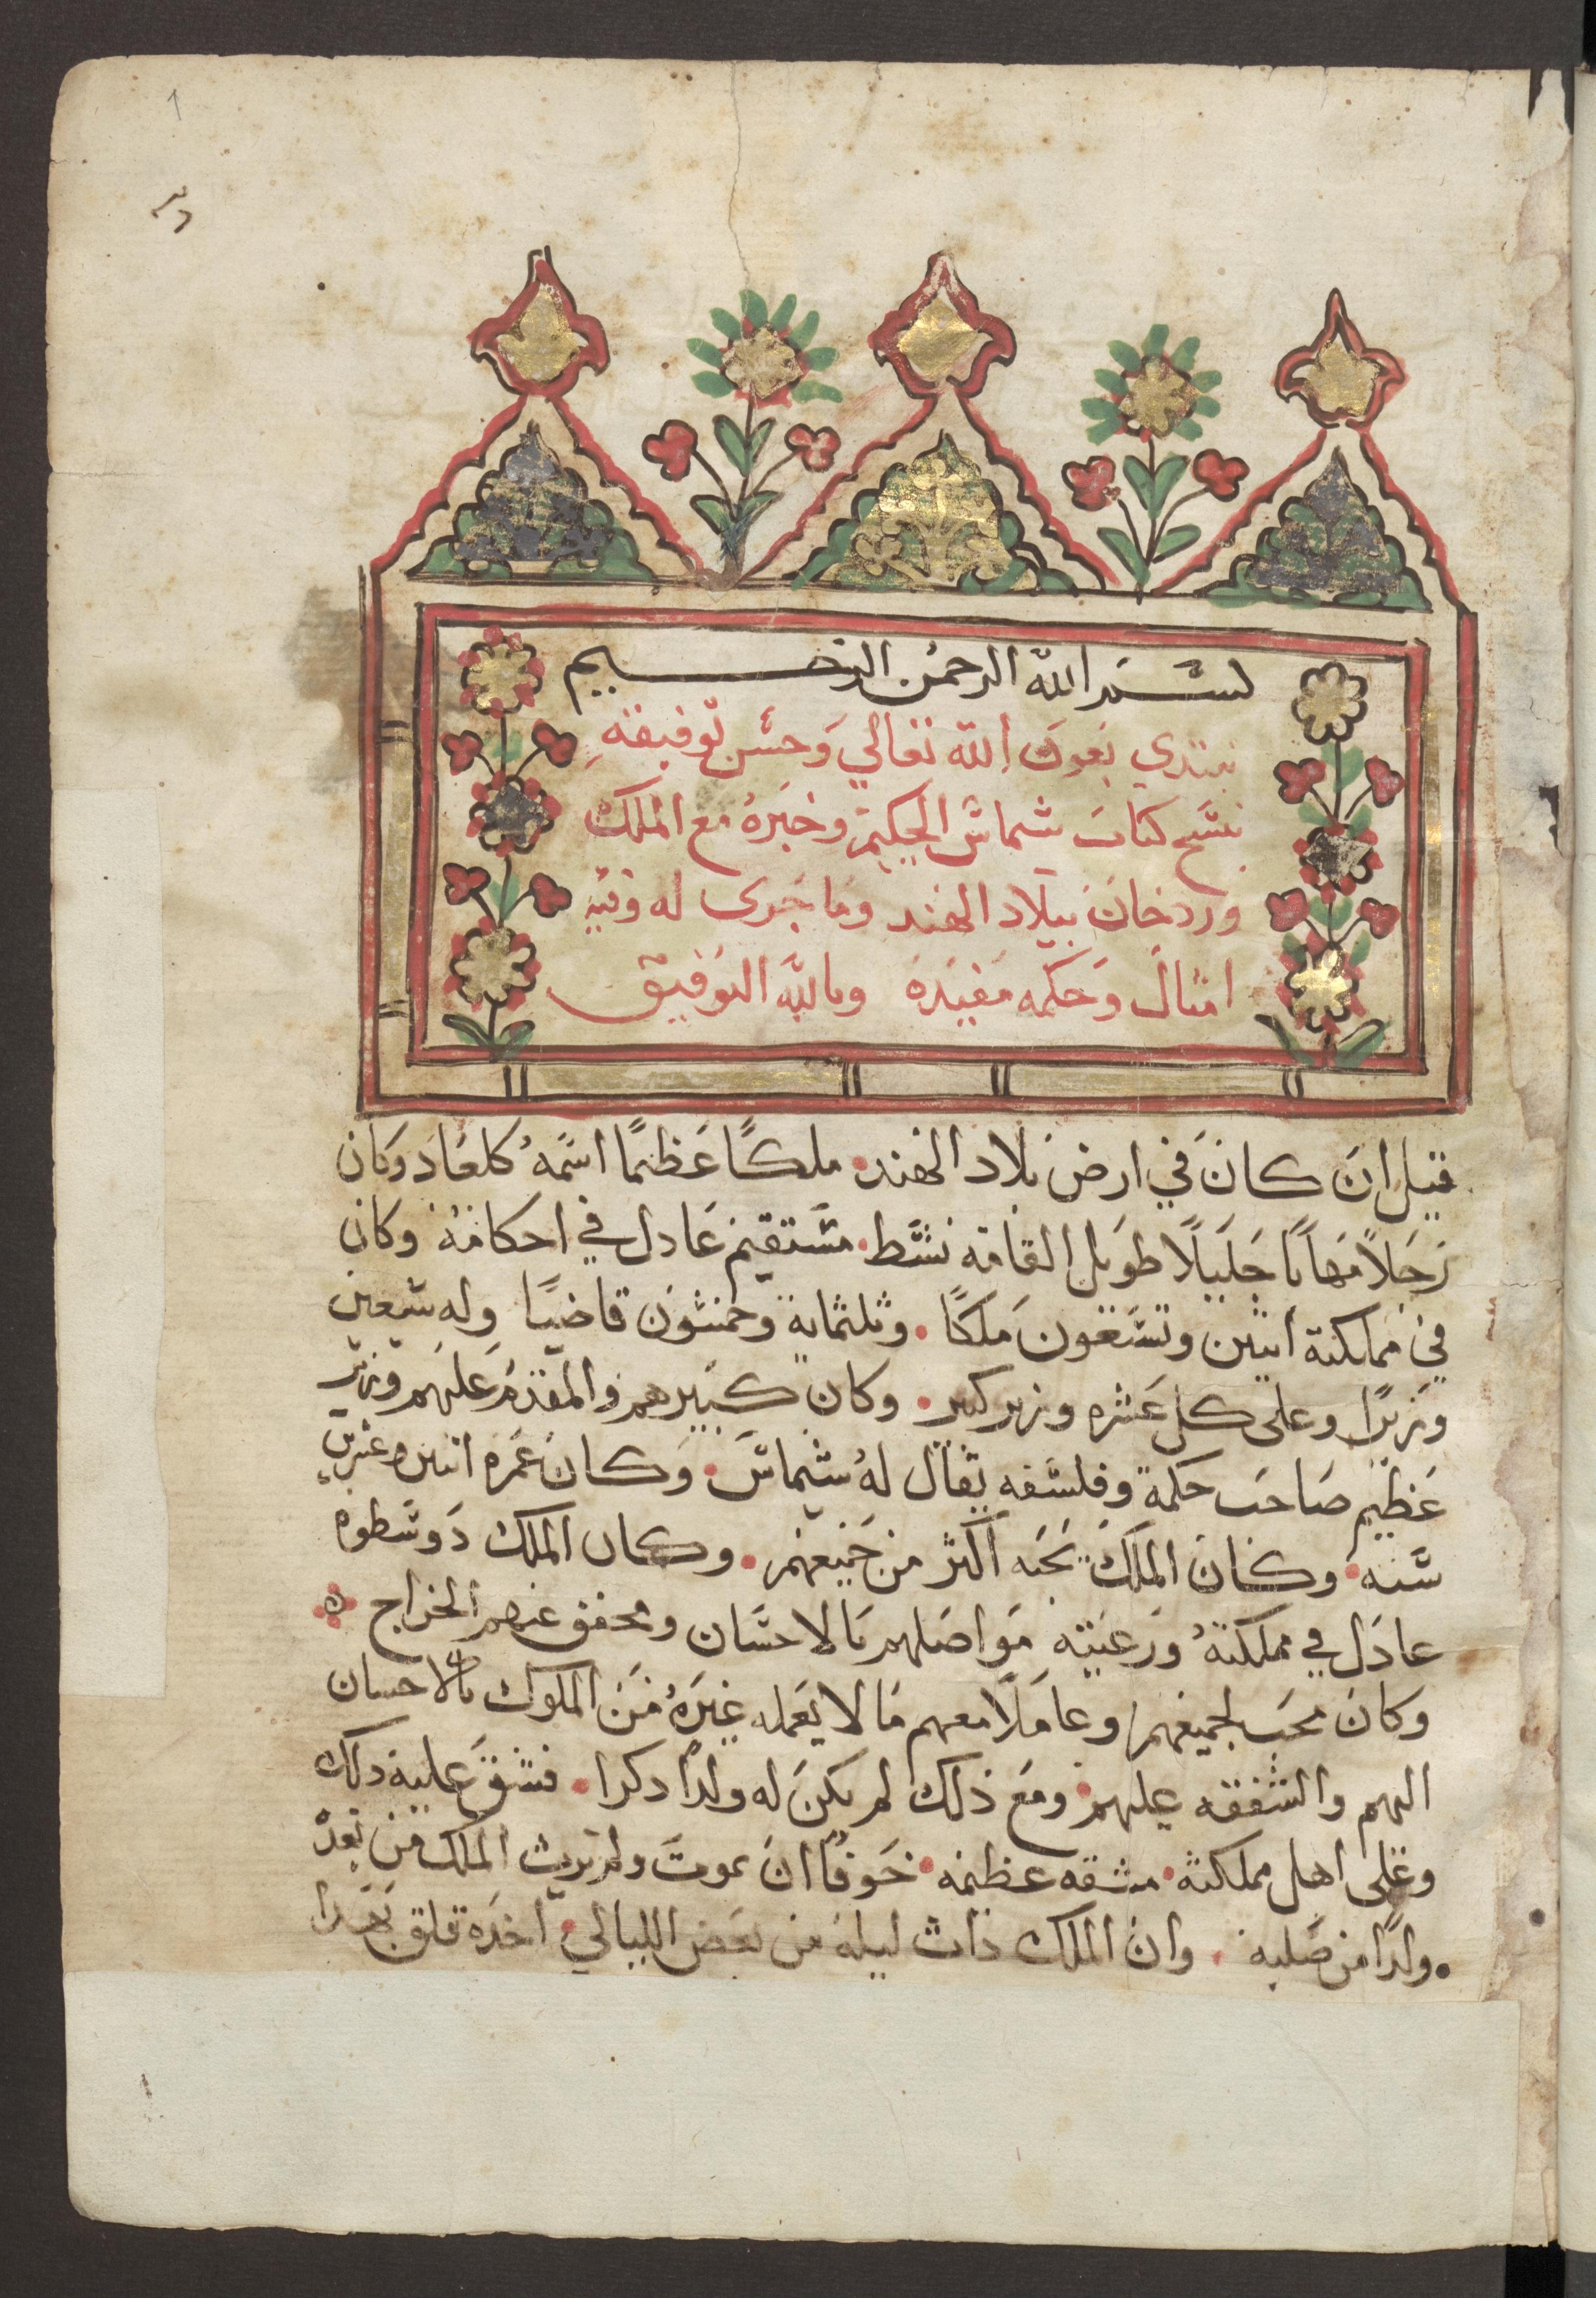 1
بسم الله الرحمن الرحيم
نبتدي بعون الله تعالي وحسن توفيقه
بنسخ كتاب شماس الحكيم وخبره مع الملك
وردخان ببلاد الهند وما جرى له وفيه
امثال وحكمه مفيده وبالله التوفيق
قيل ان كان في ارض بلاد الهند ملكًا عظيمًا اسمه كلعاد وكان
رجلاً مهابًا جليلاً طويل القامه نشط مستقيم عادل في احكامه وكان
في مملكته اثنين وتسعون ملكًا وثلثماية وخمسون قاضيًا وله سبعين
وزيرًا وعلى كل عشره وزير كبير وكان كبيرهم والمقدم عليهم وزير
عظيم صاحب حكمة وفلسفه يقال له شيماس وكان عمره اثنين وعشرين
سنه وكان الملك يحبه اكثر من جميعهم وكان الملك ذو سطوه
عادل في مملكته ورعيته مواصلهم بالاحسان ومخفف عنهم الخراج ه
وكان محب لجميعهم وعاملا معهم ما لا يعمله غيره من الملوك بالاحسان
اليهم والشفقه عليهم ومع ذلك لم يكن له ولدًا دكرا فشق عليه دلك
وعلى اهل مملكته مشقه عظيمه خوفًا ان يموت ولم يرث الملك من بعده
ولدًا من صلبه وان الملك ذات ليله من بعض الليالي اخده قلق